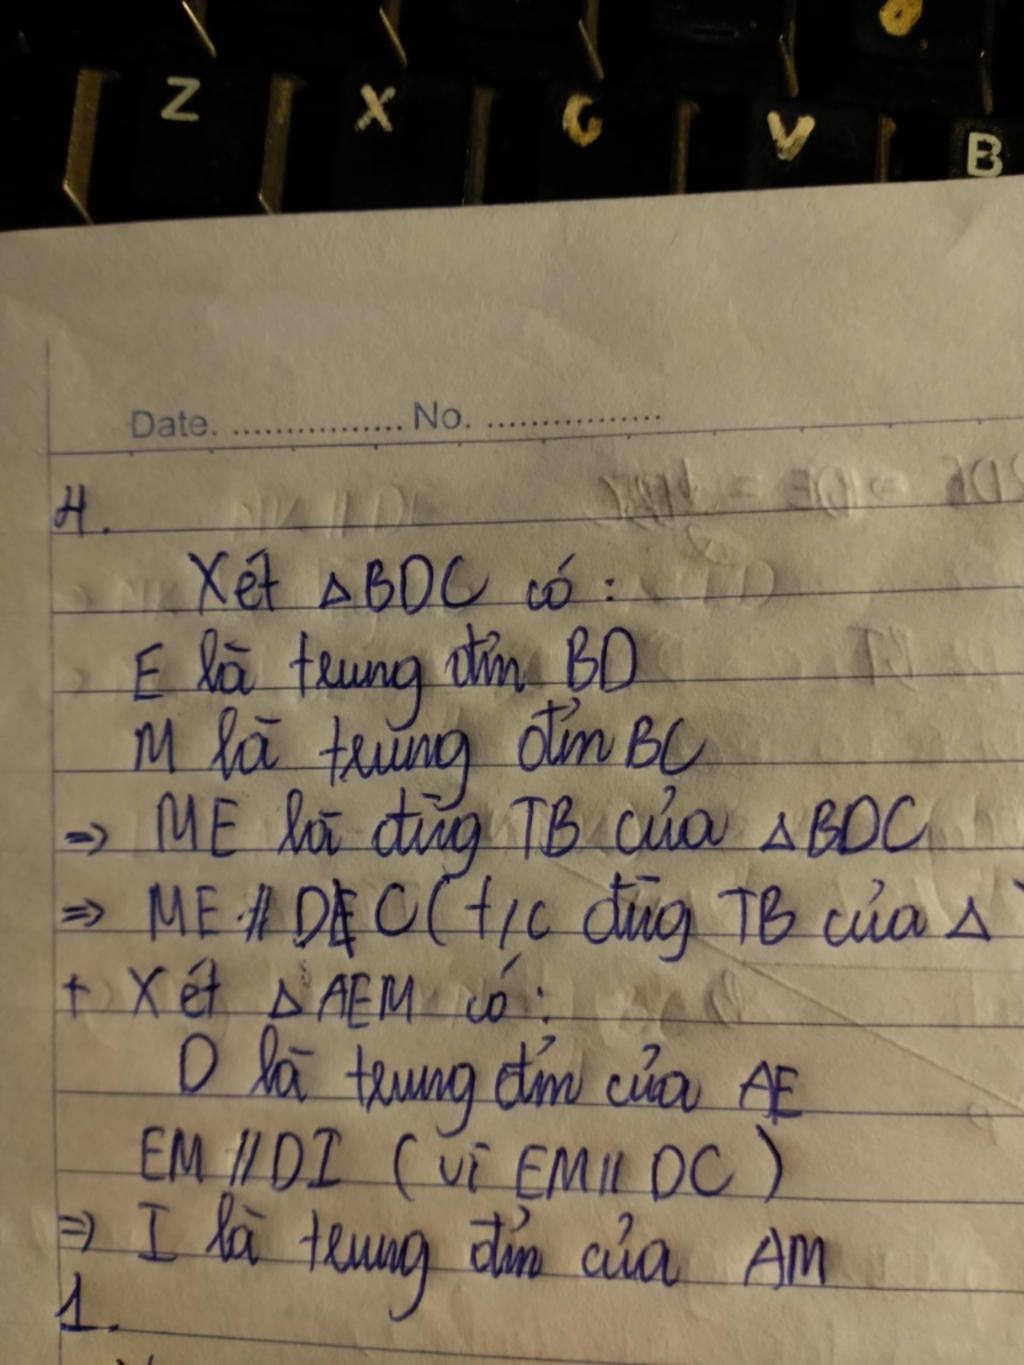 Z X C V B
Date. ................ No. ................
4.
Xét △BDC có :
E là trung đỉm BD
M là trung đỉm BC
=> ME là đùng TB của △BDC
=> ME // DC (t/c đùng TB của △
+ Xét △AEM có :
D là trung đỉm của AE
EM // DI ( vì EM // DC )
=> I là trung đỉm của AM
1.